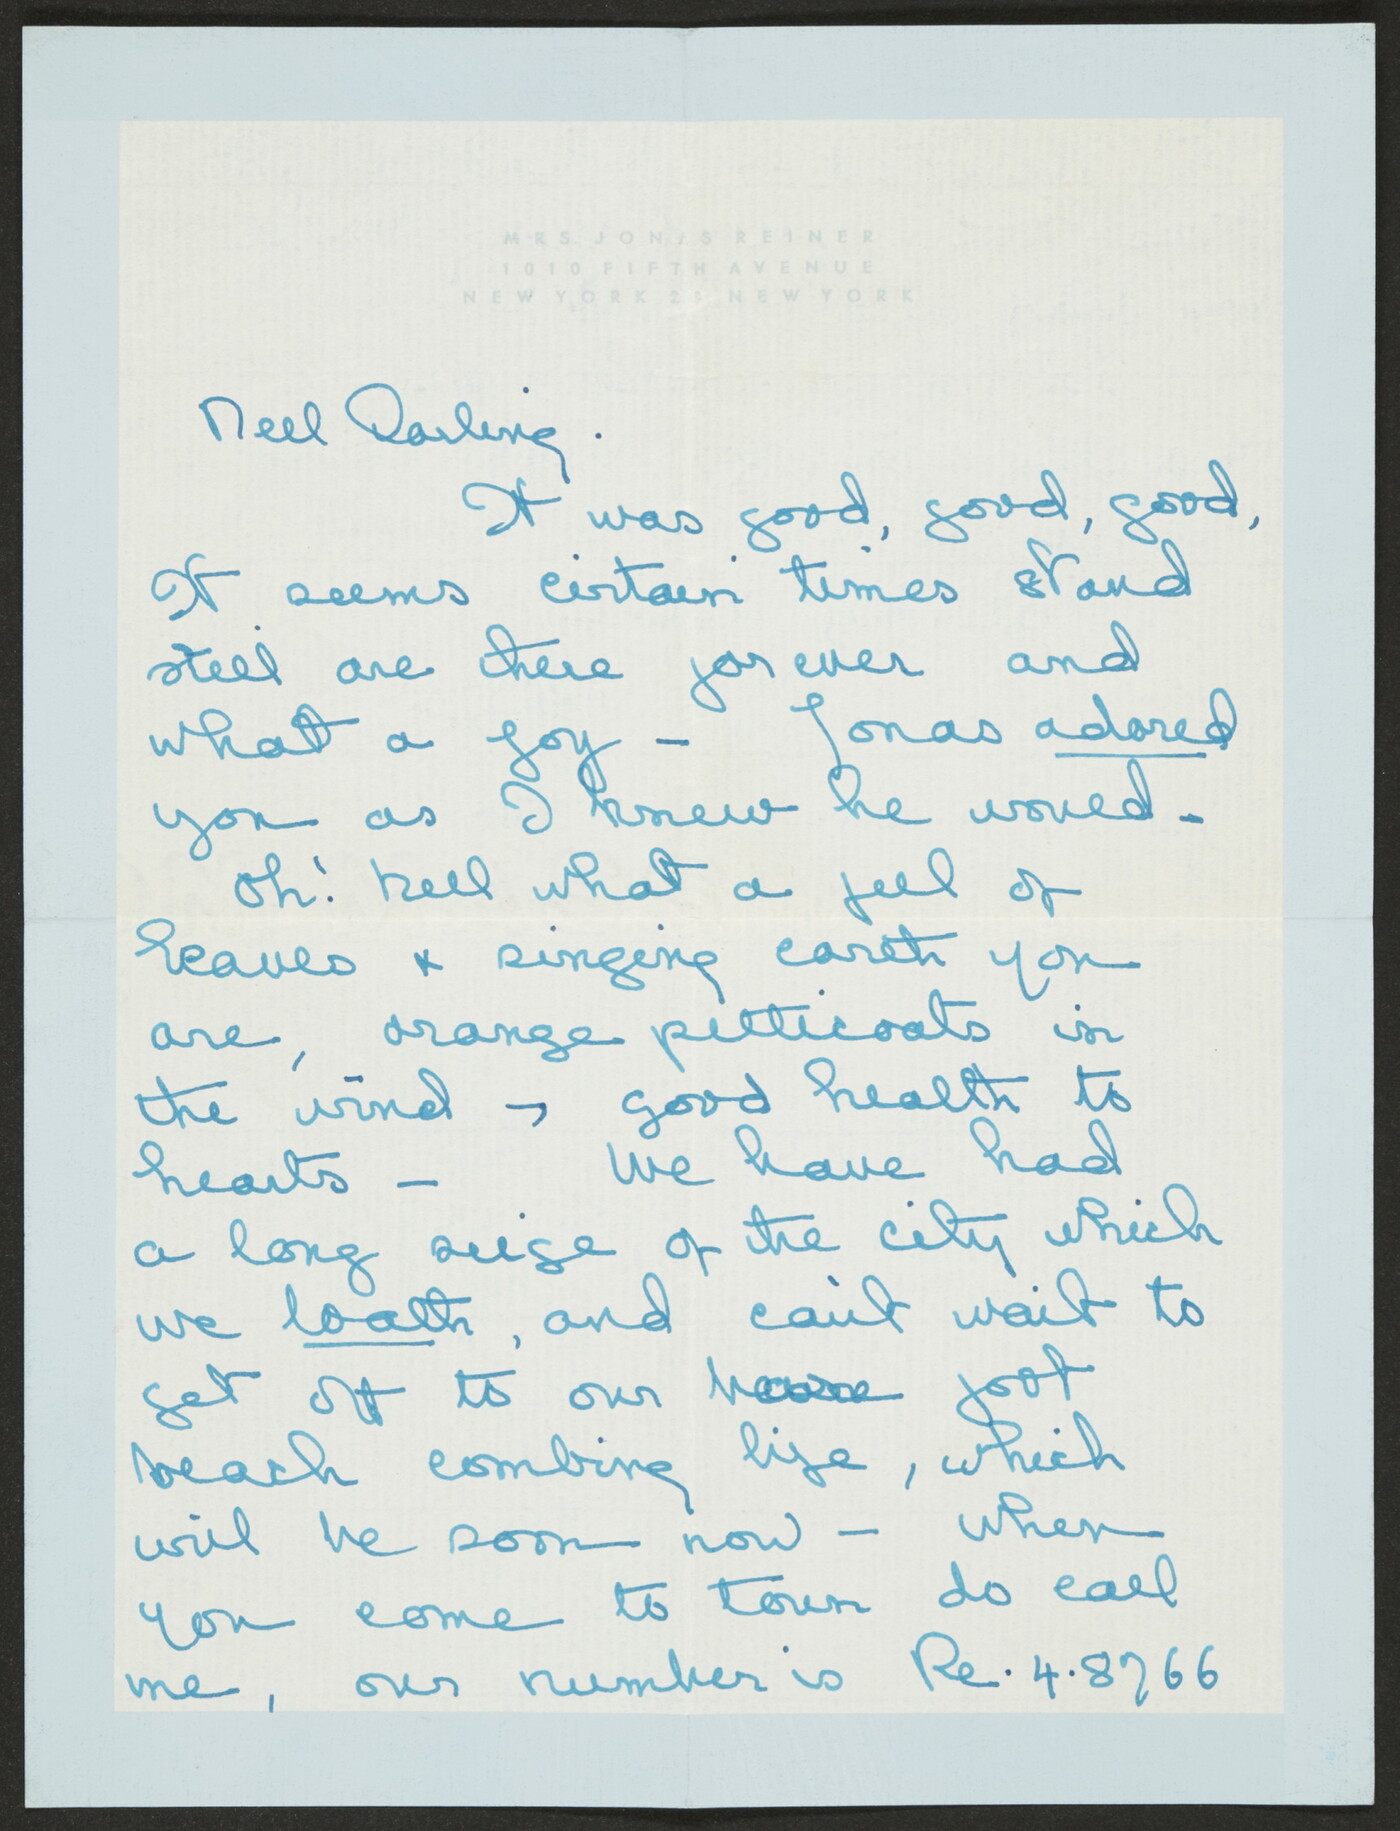 MRS JONAS REINER
1010 FIFTH AVENUE
NEW YORK 28 NEW YORK
Nell Darling.
It was good, good, good,
It seems certain times stand
still are there for ever and
what a joy - Jonas adored
you as I knew he would -
Oh! Nell what a feel of
leaves & singing earth you
are, orange petticoats in
the wind - good health to
hearts - We have had
a long seige of the city which
we loath, and can't wait to
get off to our foot
beach combing life, which
will be soon now - When
you come to town do call
me, our number is Re. 4. 8766